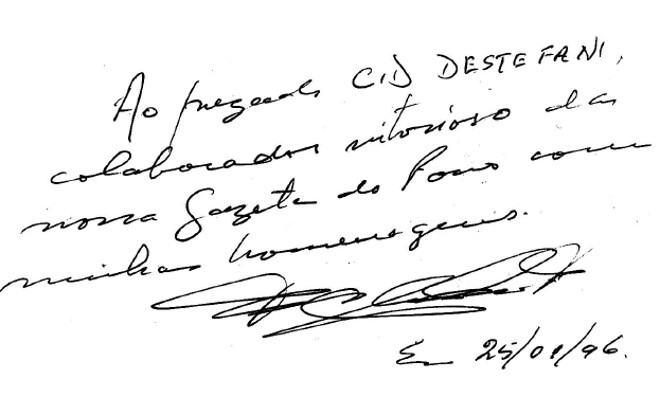 Ao prezado CID DESTEFANI,
colaborador vitorioso das
nossa Gazeta do Povo com
minhas homenagens.
Em 25/01/96.